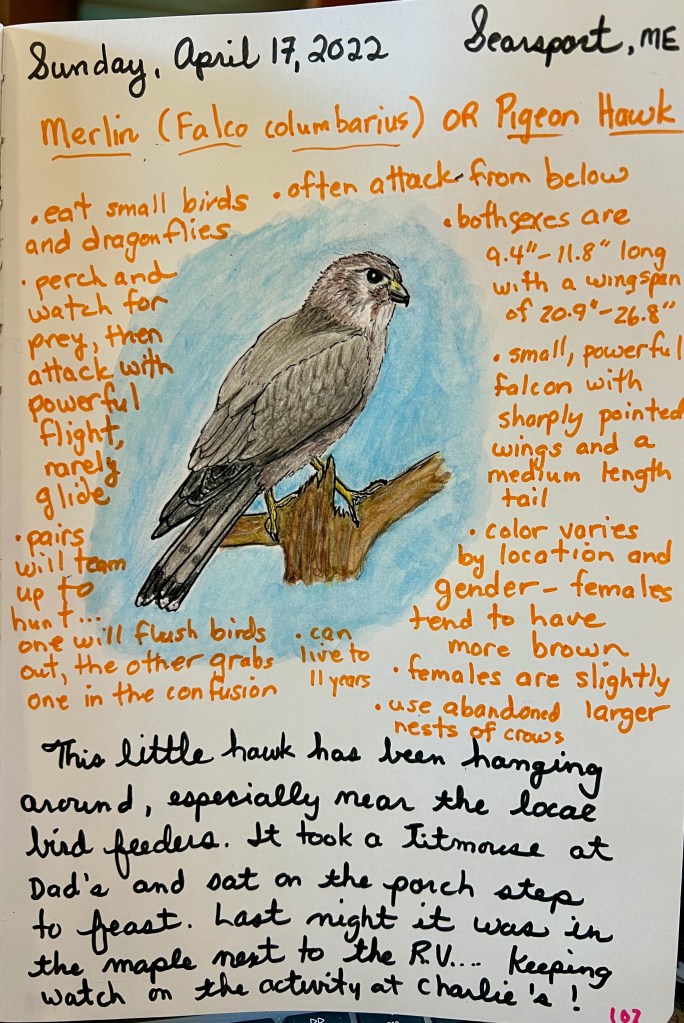 Sunday, April 17, 2022
Searsport, ME
Merlin (Falco columbarius) OR Pigeon Hawk
• often attack from below
• eat small birds
and dragonflies
• perch and
watch for
prey, then
attack with
powerful
flight,
rarely
glide
• pairs
will team
up to
hunt...
one will flush birds
out, the other grabs
one in the confusion
• can
live to
11 years
• both sexes are
9.4"-11.8" long
with a wingspan
of 20.9"-26.8"
• small, powerful
falcon with
sharply pointed
wings and a
medium length
tail
• color varies
by location and
gender - females
tend to have
more brown
• females are slightly
larger
• use abandoned
nests of crows
This little hawk has been hanging
around, especially near the local
bird feeders. It took a Titmouse at
Dad's and sat on the porch step
to feast. Last night it was in
the maple next to the R.V.... Keeping
watch on the activity at Charlie's!
107